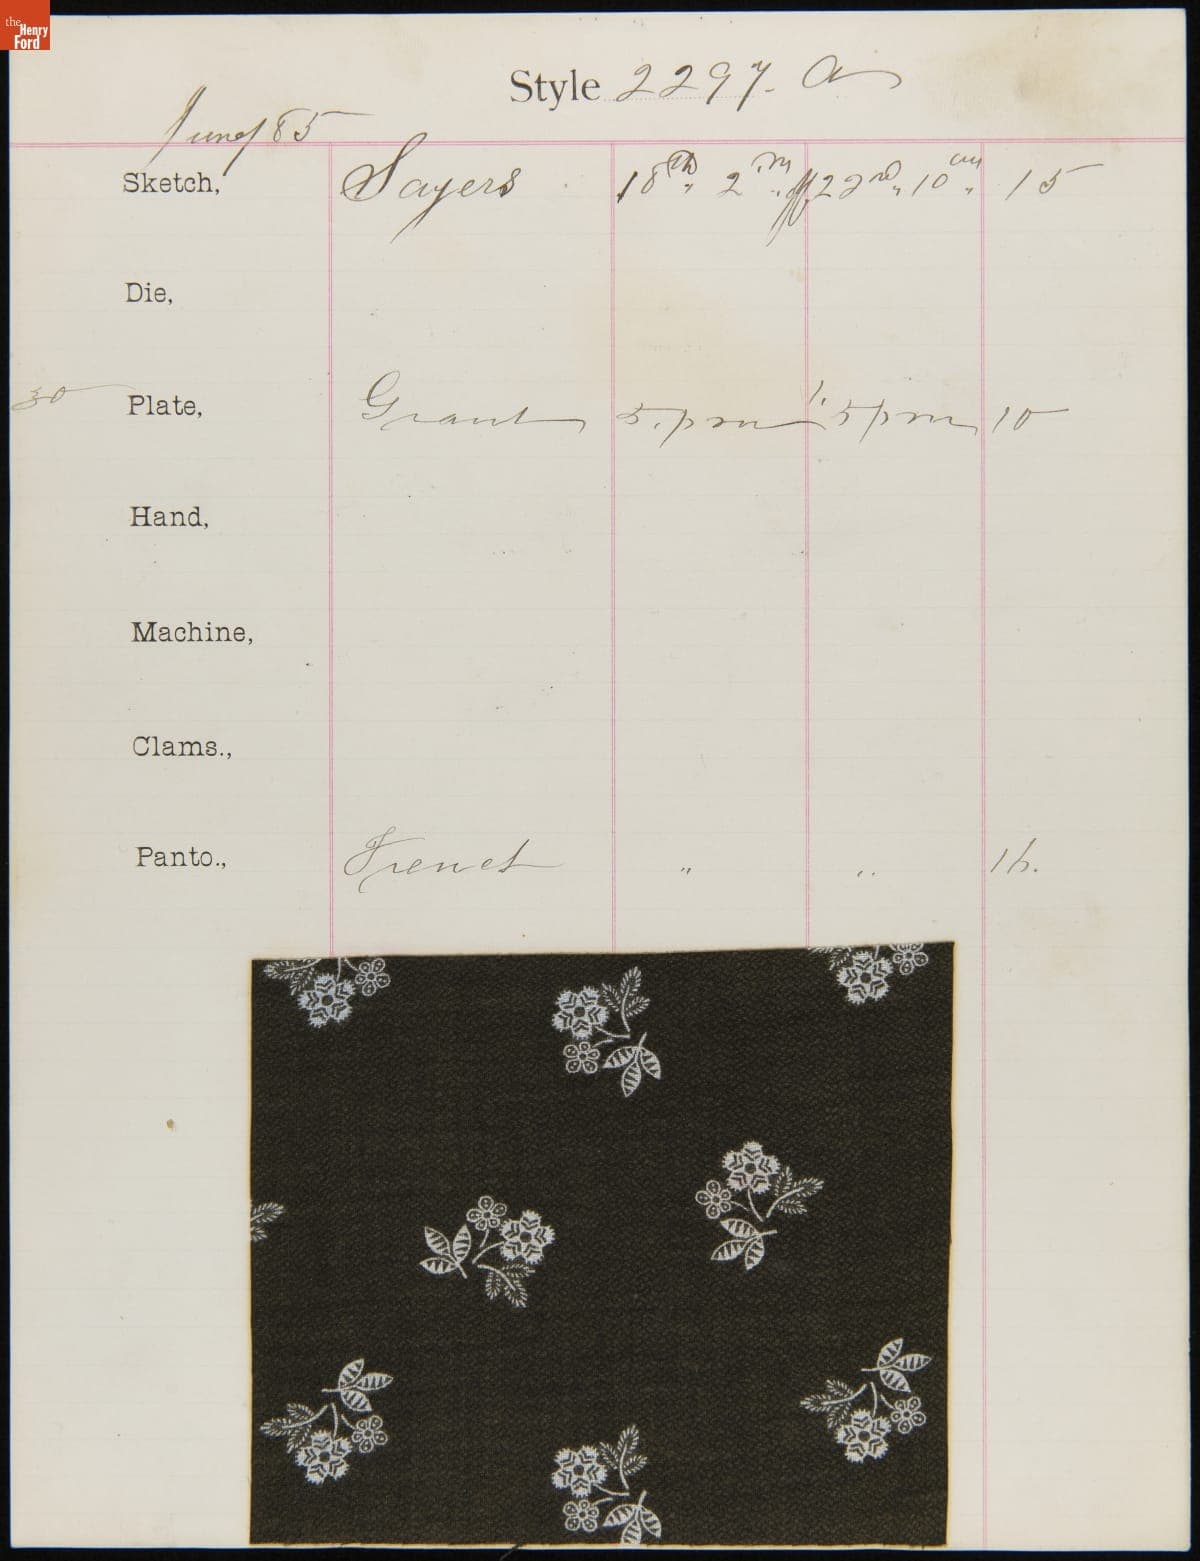 the
Henry
Ford
Style 2297. a
June/85
Sketch, Sayers 18th 2 22nd 10 am 15
Die,
30 Plate, Grant 5. pm 5 pm 10
Hand,
Machine,
Clams.,
Panto., French " "